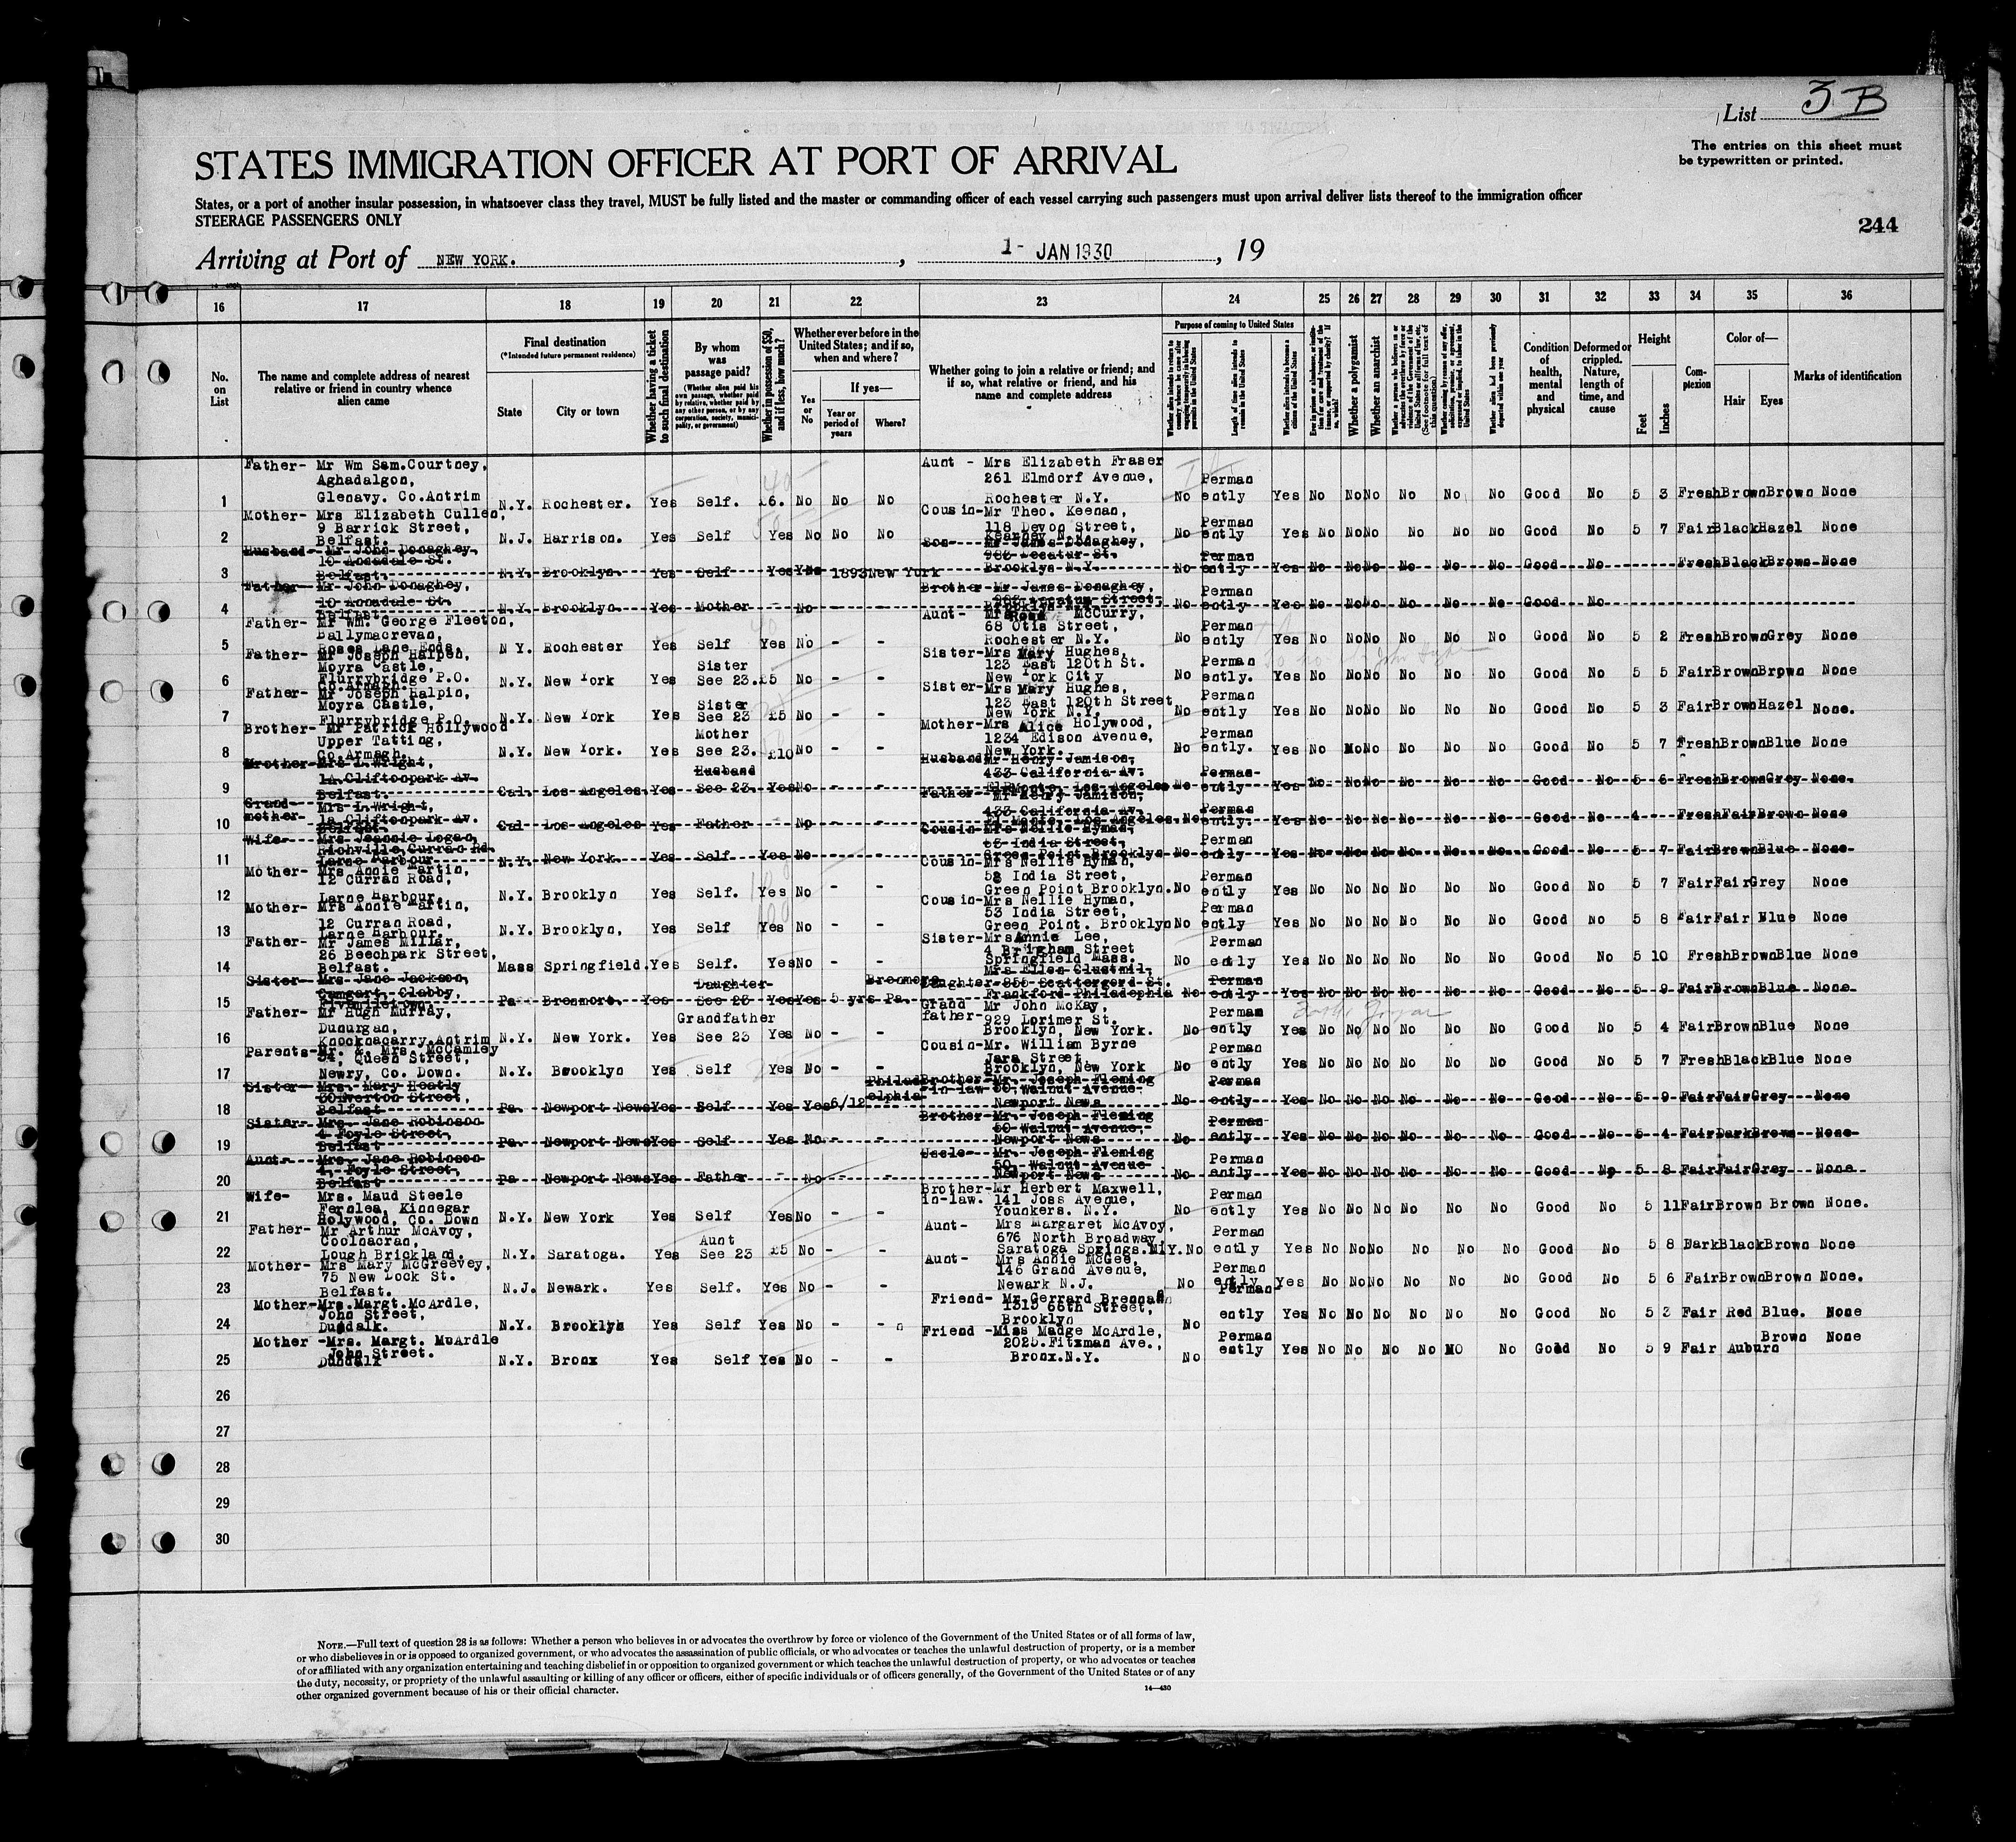 List 3 B
The entries on this sheet must
be typewritten or printed.
STATES IMMIGRATION OFFICER AT PORT OF ARRIVAL
States, or a port of another insular possession, in whatsoever class they travel, MUST be fully listed and the master or commanding officer of each vessel carrying such passengers must upon arrival deliver lists thereof to the immigration officer
STEERAGE PASSENGERS ONLY
244
Arriving at Port of NEW YORK. , 1- JAN 1930 , 19
16 17 18 19 20 21 22 23 24 25 26 27 28 29 30 31 32 33 34 35 36
No. on List
The name and complete address of nearest relative or friend in country whence alien came
Final destination
(*Intended future permanent residence)
State
City or town
Whether having a ticket to such final destination
By whom was passage paid?
(Whether alien paid his own passage, whether paid by relative, whether paid by any other person, or by any corporation, society, municipality, or government)
Whether in possession of $50, and if less, how much?
Whether ever before in the United States; and if so, when and where?
Yes or No
If yes—
Year or period of years
Where?
Whether going to join a relative or friend; and if so, what relative or friend, and his name and complete address
Purpose of coming to United States
Length of time alien intends to remain in the United States
Whether alien intends to become a citizen of the United States
Whether a polygamist
Whether an anarchist
Condition of health, mental and physical
Deformed or crippled. Nature, length of time, and cause
Height
Feet
Inches
Complexion
Color of—
Hair
Eyes
Marks of identification
1 Father- Mr Wm Sam.Courtney, Aghadalgon, Glenavy. Co.Antrim N.Y. Rochester. Yes Self. £6. No No No Aunt - Mrs Elizabeth Fraser 261 Elmdorf Avenue, Rochester N.Y. No Permanently Yes No No No No No No Good No 5 3 Fresh Brown Brown None
2 Mother- Mrs Elizabeth Cullen, 9 Barrick Street, Belfast. N.J. Harrison. Yes Self Yes No No No Cousin-Mr Theo. Keenan, 118 Devon Street, Kearney N.J. No Permanently Yes No No No No No No Good No 5 7 Fair Black Hazel None
3 Husband- Mr John Donaghey, 10 Annadale St. Belfast. N.Y. Brooklyn. Yes Self Yes 1893 New York Son- Mr James Donaghey, Decatur St. Brooklyn N.Y. No Permanently Yes No No No No No No Good No Fresh Black Brown None
4 Father- Mr John Donaghey, 10 Annadale St. Belfast. N.Y. Brooklyn. Yes Mother - No - - Brother- Mr James Donaghey, Brooklyn N.Y. No Permanently Yes No No No No No No Good No
5 Father- Mr Wm. George Fleeton, Ballymacrevan, Roses Lane Ends. N Y. Rochester Yes Self Yes No - - Aunt- Mrs Rose McCurry, 68 Otis Street, Rochester N.Y. No Permanently Yes No No No No No No Good No 5 2 Fresh Brown Grey None
6 Father- Mr Joseph Halpen, Moyra Castle, Flurrybridge P.O. Co.Armagh. N.Y. New York Yes Sister See 23. £5 No - - Sister-Mrs Mary Hughes, 123 East 120th St. New York City No Permanently. Yes No No No No No No Good No 5 5 Fair Brown Brown None
7 Father- Mr Joseph Halpin, Moyra Castle, Flurrybridge P.O. N.Y. New York Yes Sister See 23 £5 No - - Sister-Mrs Mary Hughes, 123 East 120th Street New York N.Y. No Permanently Yes No No No No No No Good No 5 3 Fair Brown Hazel None.
8 Brother- Mr Patrick Hollywood Upper Tatting, Co.Armagh. N.Y. New York. Yes Mother See 23. £10 No - - Mother-Mrs Alice Holywood, 1234 Edison Avenue, New York. No Permanently. Yes No No No No No No Good No 5 7 Fresh Brown Blue None
9 Mrs L.Wright, 1A Cliftonpark Av. Belfast. Cal. Los Angeles Yes Husband See 23. Yes No - - Husband-Mr Henry Jamison, 433 California Av. El Monte, Los Angeles No Permanently Yes No No No No No No Good No 5 6 Fresh Brown Grey None.
10 Grandmother- Mrs L.Wright, 1a Cliftonpark Av. Belfast. Cal Los Angeles Yes Father - No - - Father- Mr Henry Jamison, 433 California Av. El Monte, Los Angeles. No Permanently. Yes No No No No No No Good No 4 Fresh Fair Brown None
11 Wife- Mrs. Jeannie Logan, Richville, Curran Rd. Larne Harbour N.Y. New York. Yes Self Yes No - - Cousin-Mrs Nellie Hyman, India Street, Green Point Brooklyn No Permanently Yes No No No No No No Good No 5 7 Fair Brown Blue None
12 Mother- Mrs Annie Martin, 12 Curran Road, Larne Harbour. N.Y. Brooklyn Yes Self. Yes No - - Cousin-Mrs Nellie Hyman, 53 India Street, Green Point Brooklyn. No Permanently Yes No No No No No No Good No 5 7 Fair Fair Grey None
13 Mother- Mrs Annie Martin, 12 Curran Road, Larne Harbour. N.Y. Brooklyn, Yes Self Yes No - - Cousin-Mrs Nellie Hyman, 53 India Street, Green Point. Brooklyn No Permanently Yes No No No No No No Good No 5 8 Fair Fair Blue None
14 Father- Mr James Millar, 26 Beechpark Street, Belfast. Mass Springfield. Yes Self. Yes No - - Sister-Mrs Annie Lee, 4 Brigham Street Springfield Mass. No Permanently Yes No No No No No No Good No 5 10 Fresh Brown Blue None
15 Sister- Mrs Jane Jackson, Clabby, Fivemiletown. Pa. Yes Daughter See 23 Yes Yes 5 yrs Pa. Daughter- Mrs Ellen Frankford Philadephia No Permanently Yes No No No No No No Good No 5 9 Fair Brown Blue None
16 Father- Mr Hugh Murray, Dunurgan, Knocknacarry.Antrim N.Y. New York. Yes Grandfather See 23 Yes No - Grandfather- Mr John McKay, 929 Lorimer St. Brooklyn, New York. No Permanently Yes No No No No No No Good No 5 4 Fair Brown Blue None
17 Parents-Mr. & Mrs. McCamley 34, Queen Street, Newry, Co. Down. N.Y. Brooklyn Yes Self Yes No - Cousin-Mr. William Byrne Jara Street, Brooklyn, New York No Permanently Yes No No No No No No Good No 5 7 Fresh Black Blue None
18 Sister- Mrs. Mary Heatly Street, Belfast Pa. Newport News Yes Self Yes Yes 6/12 Philadelphia Brother-in-law Mr. Joseph Fleming 50 Walnut Avenue Newport News No Permanently Yes No No No No No No Good No 5 9 Fair Fair Grey None
19 Sister- Mrs. Jane Robinson 4 Foyle Street, Belfast Pa. Newport News Yes Self Yes No - - Brother-Mr. Joseph Fleming 50 Walnut Avenue, Newport News No Permanently Yes No No No No No No Good No 5 4 Fair Dark Brown None
20 Aunt- Mrs. Jane Robinson 4, Foyle Street, Belfast Pa Newport News Yes Father - No - - Uncle- Mr. Joseph Fleming 50, Walnut Avenue Newport News No Permanently Yes No No No No No No Good No 5 8 Fair Fair Grey None
21 Wife- Mrs. Maud Steele Fernlea, Kinnegar Holywood, Co. Down N.Y. New York Yes Self Yes No - - Brother-in-law. Mr Herbert Maxwell, 141 Joss Avenue, Younkers. N.Y. No Permanently Yes No No No No No No Good No 5 11 Fair Brown Brown None.
22 Father- Mr Arthur McAvoy, Coolnacran, Lough Brickland. N.Y. Saratoga. Yes Aunt See 23 £5 No - - Aunt- Mrs Margaret McAvoy, 676 North Broadway, Saratoga Springs. N.Y. No Permanently Yes No No No No No No Good No 5 8 Dark Black Brown None
23 Mother- Mrs Mary McGreevey, 75 New Dock St. Belfast. N.J. Newark. Yes Self. Yes No - - Aunt- Mrs Annie McGee, 146 Grand Avenue, Newark N.J. No Permanently Yes No No No No No No Good No 5 6 Fair Brown Brown None.
24 Mother-Mrs.Margt.McArdle, John Street, Dundalk. N.Y. Brooklyn Yes Self Yes No - - Friend- Mr Gerrard Brennan 1315 66th Street, Brooklyn No Permanently Yes No No No No No No Good No 5 3 Fair Red Blue. None
25 Mother -Mrs. Margt. McArdle John Street. Dundalk N.Y. Bronx Yes Self Yes No - - Friend -Miss Madge McArdle, 2025.Fitxman Ave., Bronx.N.Y. No Permanently Yes No No No No NO No Good No 5 9 Fair Auburn Brown None
26
27
28
29
30
NOTE.—Full text of question 28 is as follows: Whether a person who believes in or advocates the overthrow by force or violence of the Government of the United States or of all forms of law,
or who disbelieves in or is opposed to organized government, or who advocates the assassination of public officials, or who advocates or teaches the unlawful destruction of property, or is a member
of or affiliated with any organization entertaining and teaching disbelief in or opposition to organized government or which teaches the unlawful destruction of property, or who advocates or teaches
the duty, necessity, or propriety of the unlawful assaulting or killing of any officer or officers, either of specific individuals or of officers generally, of the Government of the United States or of any
other organized government because of his or their official character.
14—430